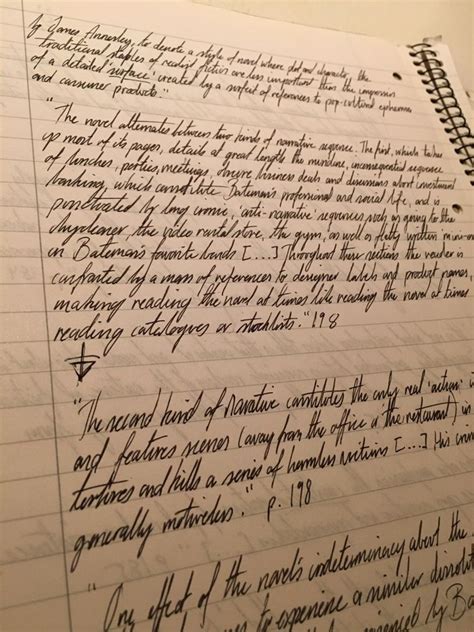 by James Annesley, to denote a style of novel where plot and character, the
traditional staples of realist fiction are less important than the compression
of a detailed 'surface' created by a surfeit of references to pop-cultural ephemera
and consumer products."
"The novel alternates between two kinds of narrative sequence. The first, which takes
up most of its pages, details at great length the mundane, inconsequential sequence
of lunches, parties, meetings, business deals and discussions about investment
banking, which constitute Bateman's professional and social life, and is
punctuated by long comic, 'anti-narrative' sequences such as going to the
drycleaner, the video rental store, the gym, as well as flatly written
on Bateman's favorite bands [....] Throughout these sections the reader is
confronted by a mass of references to designer labels and product names,
making reading the novel at times like reading the novel at times
reading catalogues or stocklists." 198
"The second kind of narrative constitutes the only real 'action'
and features scenes (away from the office or the restaurant)
tortures and kills a series of harmless victims [....] His
generally motiveless." p. 198
"One effect of the novel's indeterminacy about the
to experience a similar
by Ba